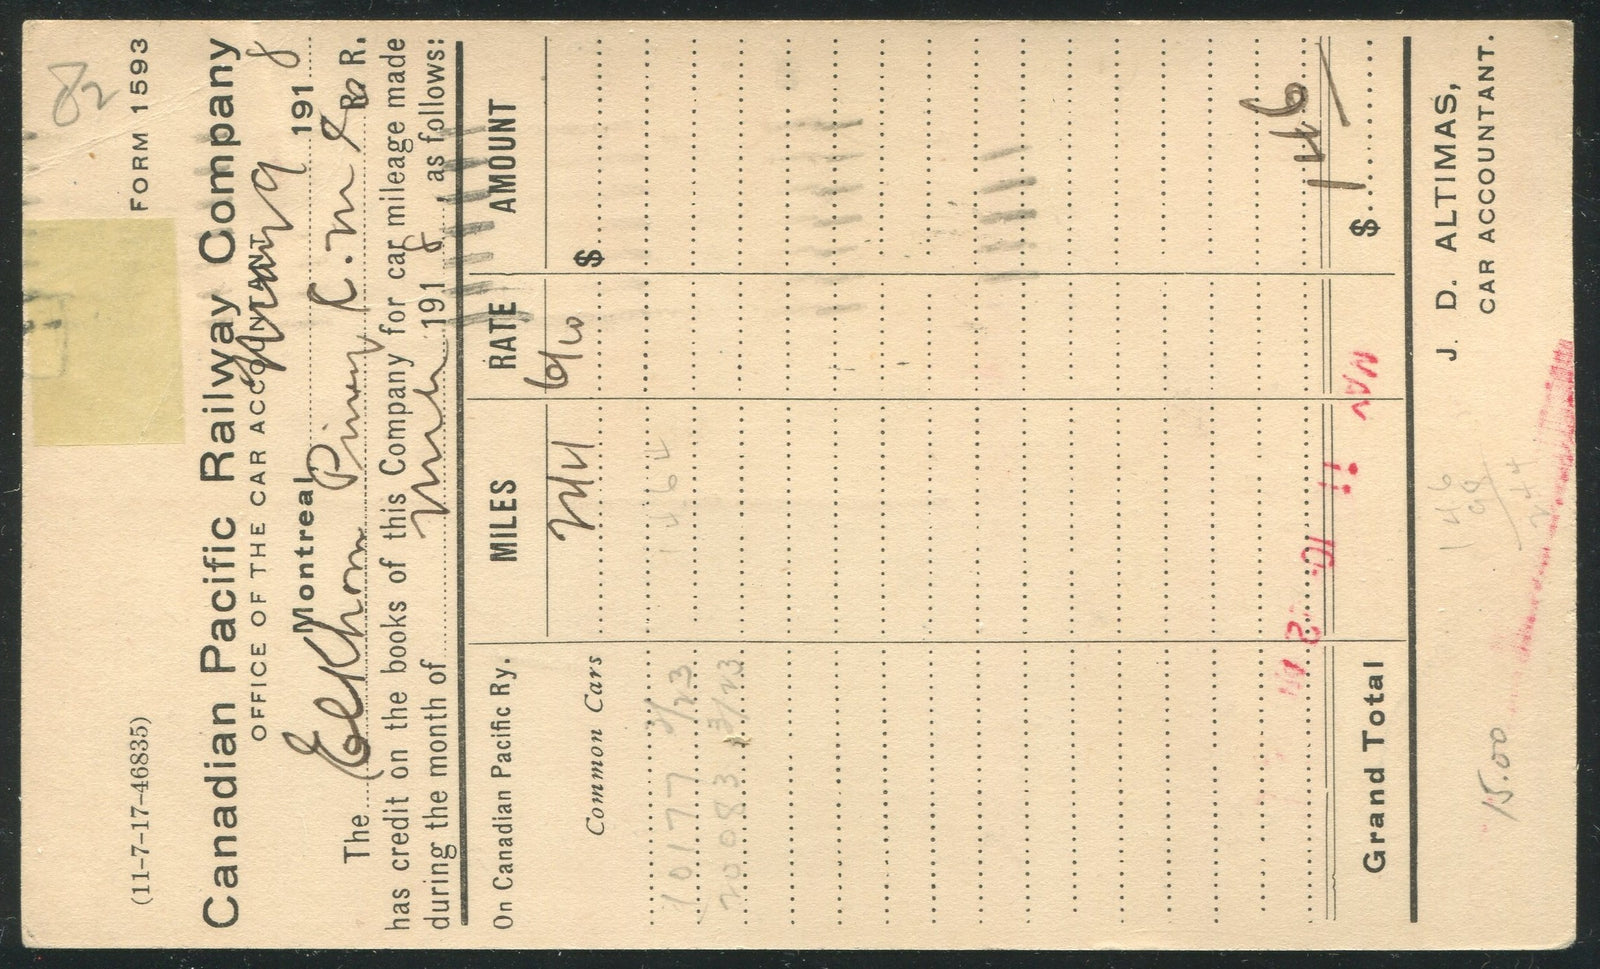 82
(11-7-17-46835) FORM 1593
Canadian Pacific Railway Company
OFFICE OF THE CAR ACCOUNTANT
Montreal, May 9 1918
The Elkhorn Piney R.R.
has credit on the books of this Company for car mileage made
during the month of Mch 1918, as follows:
On Canadian Pacific Ry. MILES RATE AMOUNT
Common Cars 244 6/10 $
10177 3/23 1464
20083 3/23
1 46
Grand Total $
MAY 11 10
J. D. ALTIMAS,
CAR ACCOUNTANT.
1 46
98
2 44
15.00